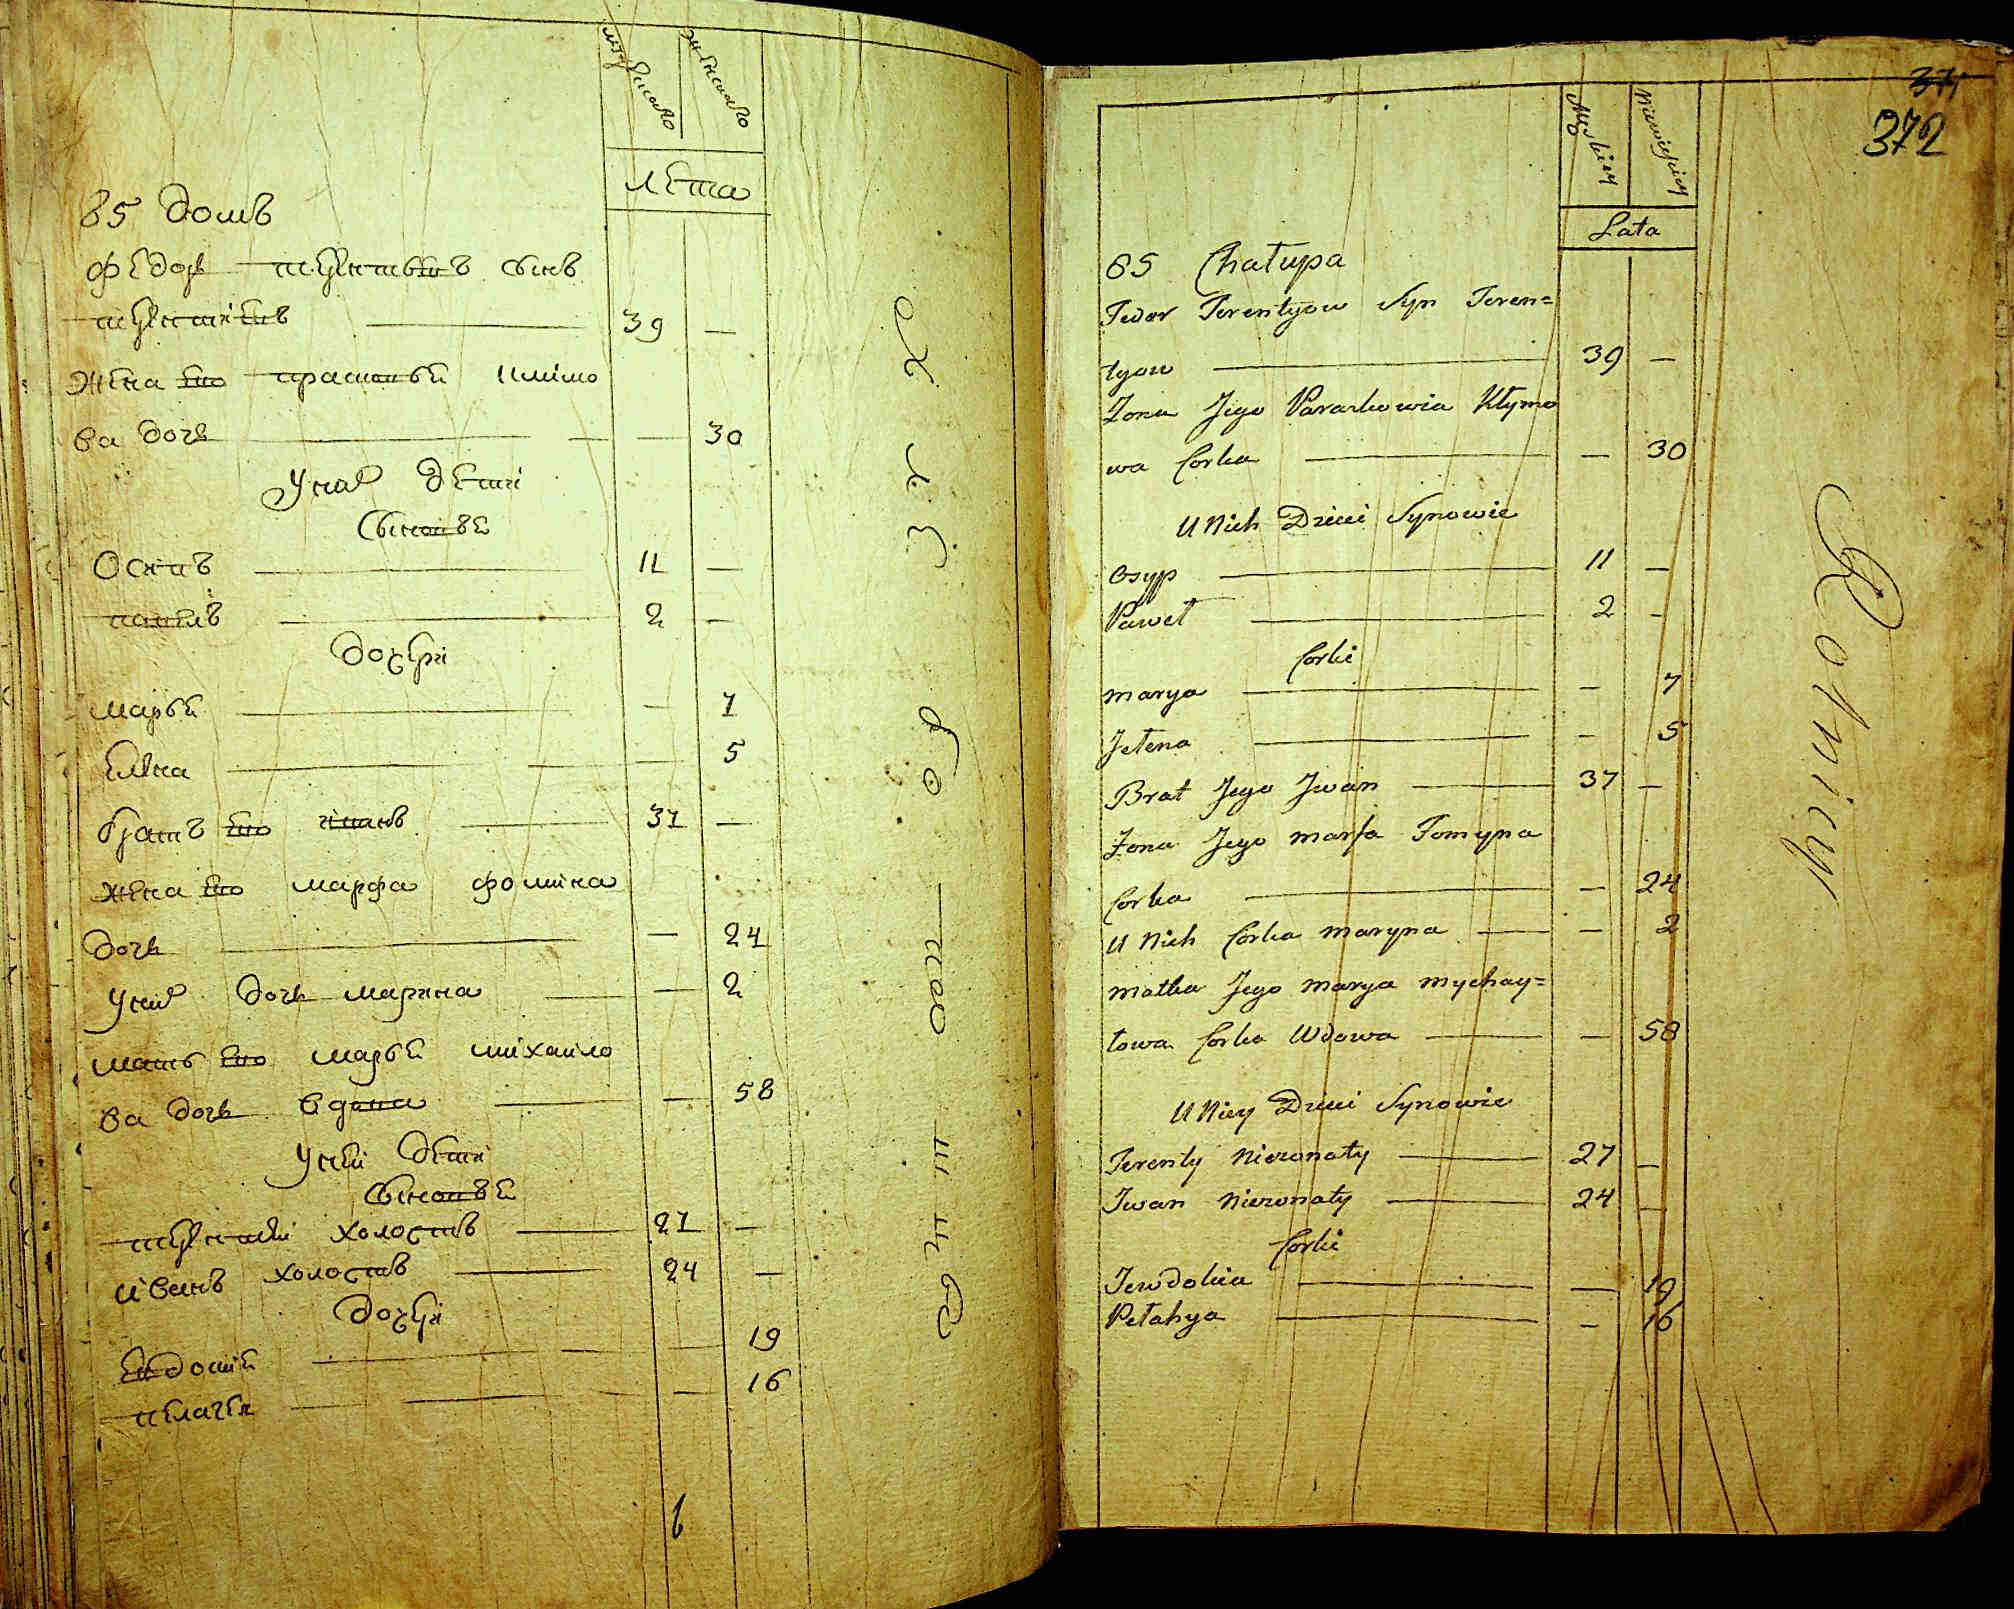 мужеска
женска
лѣта
85 домъ
Федоръ терентьевъ сынъ
терентіевъ — 39 —
жена его прасковьѣ климо
ва дочь — — 30
Унихъ дѣти
Сыновьѣ
Осипъ — 11 —
павелъ — 2 —
дочери
марьѣ — — 7
Елена — — 5
братъ его иванъ — 37 —
жена его марфа фомина
дочь — — 24
Унихъ дочь марина — — 2
мать его марьѣ михаило
ва дочь вдова — — 58
Унѣй дѣти
Сыновьѣ
терентѣй холостъ — 27 —
иванъ холостъ — 24 —
дочери
Евдокиѣ — — 19
пелагея — — 16
371
372
Męskiey
Niewieskiey
Lata
85 Chałupa
Fedor Terentyow Syn Teren=
tyow — 39 —
Żona Jego Paraskowia Kłymo
wa Corka — — 30
U Nich Dzieci Synowie
Osyp — 11 —
Paweł — 2 —
Corki
marya — — 7
Jełena — — 5
Brat Jego Jwan — 37 —
Żona Jego marfa Fomyna
Corka — — 24
U Nich Corka maryna — — 2
matka Jego marya mychay=
łowa Corka Wdowa — — 58
U Niey Dzieci Synowie
Terenty Nieżonaty — 27 —
Jwan Nieżonaty — 24 —
Corki
Jewdokia — — 19
Pełahya — — 16
Rolnicy